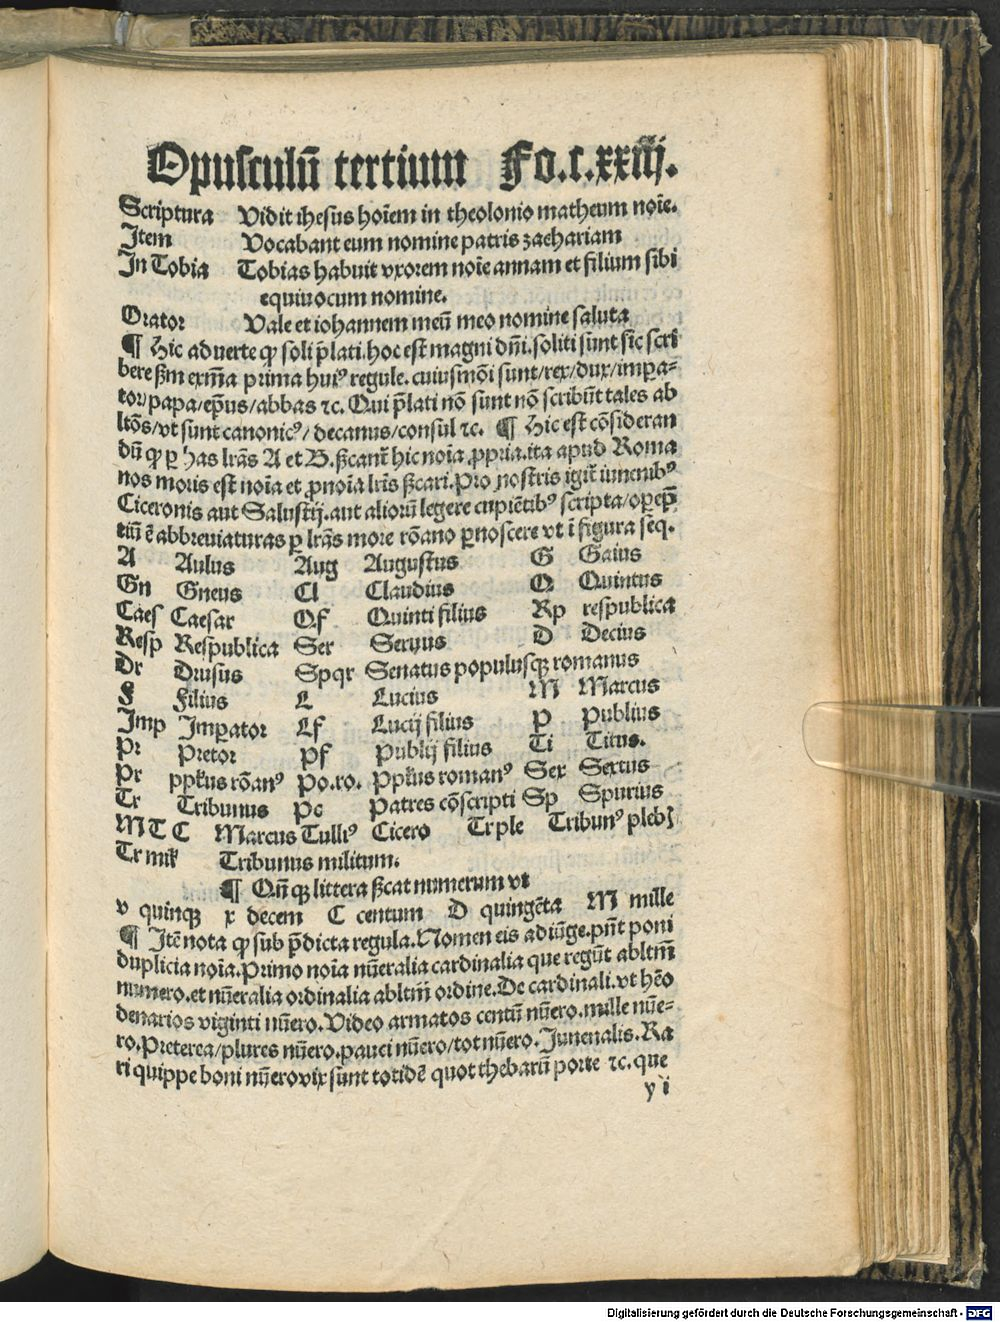 Opusculū tertium Fo.c.xxiiij.
Scriptura Vidit ihesus hoīem in theolonio matheum noīe.
Item Vocabant eum nomine patris zachariam
In Tobia Tobias habuit vxorem noīe annam et filium sibi
equiuocum nomine.
Orator Vale et iohannem meū meo nomine saluta
¶ Hic aduerte ꝙ soli p̄lati. hoc est magni dn̄i. soliti sunt sic scri
bere ßm exm̄a prima huiꝰ regule. cuiusmōi sunt/rex/dux/impa-
tor/papa/ep̄us/abbas ⁊c. Qui p̄lati nō sunt nō scribūt tales ab
ltōs/vt sunt canonicꝰ/decanus/consul ⁊c. ¶ Hic est cōsideran
dū ꝙ ꝑ has lrās A et B. ßcant̄ hic noīa ꝓpria. ita apud Roma
nos moris est noīa et ꝓnoīa lrīs ßcari. Pro nostris igit̄ iuuenibꝰ
Ciceronis aut Salustij. aut aliorū legere cupiētibꝰ scripta/opep̄
tiū ē abbreuiaturas ꝑ lrās more rōano ꝑnoscere vt ī figura seq.
A Aulus Aug Augustus G Gaius
Gn Gneus Cl Claudius Q Quintus
Caes Caesar Qf Quinti filius Rp respublica
Resp Respublica Ser Seruus D Decius
Dr Drusus Spqr Senatus populusqꝫ romanus
F Filius L Lucius M Marcus
Imp Imꝑator Lf Lucij filius P Publius
Pr Pretor Pf Publij filius Ti Titus.
Pr ppl̄us rōanꝰ Po.ro. Ppl̄us romanꝰ Sex Sextus
Tr Tribunus Pc Patres cōscripti Sp Spurius
M T C Marcus Tulliꝰ Cicero Tr ple Tribunꝰ plebꝫ
Tr mil Tribunus militum.
¶ Qn̄qꝫ littera ßcat numerum vt
v quinqꝫ x decem C centum D quingēta M mille
¶ Itē nota ꝙ sub p̄dicta regula. Nomen eis adiūge. pn̄t poni
duplicia noīa. Primo noīa nūeralia cardinalia que regūt abltm̄
numero. et nūeralia ordinalia abltm̄ ordine. De cardinali. vt hēo
denarios viginti nūero. Video armatos centū nūero. mille nūe-
ro. Preterea/plures nūero. pauci nūero/tot nūero. Juuenalis. Ra
ri quippe boni nūero vix sunt totidē quot thebarū porte ⁊c. que
y i
Digitalisierung gefördert durch die Deutsche Forschungsgemeinschaft - DFG